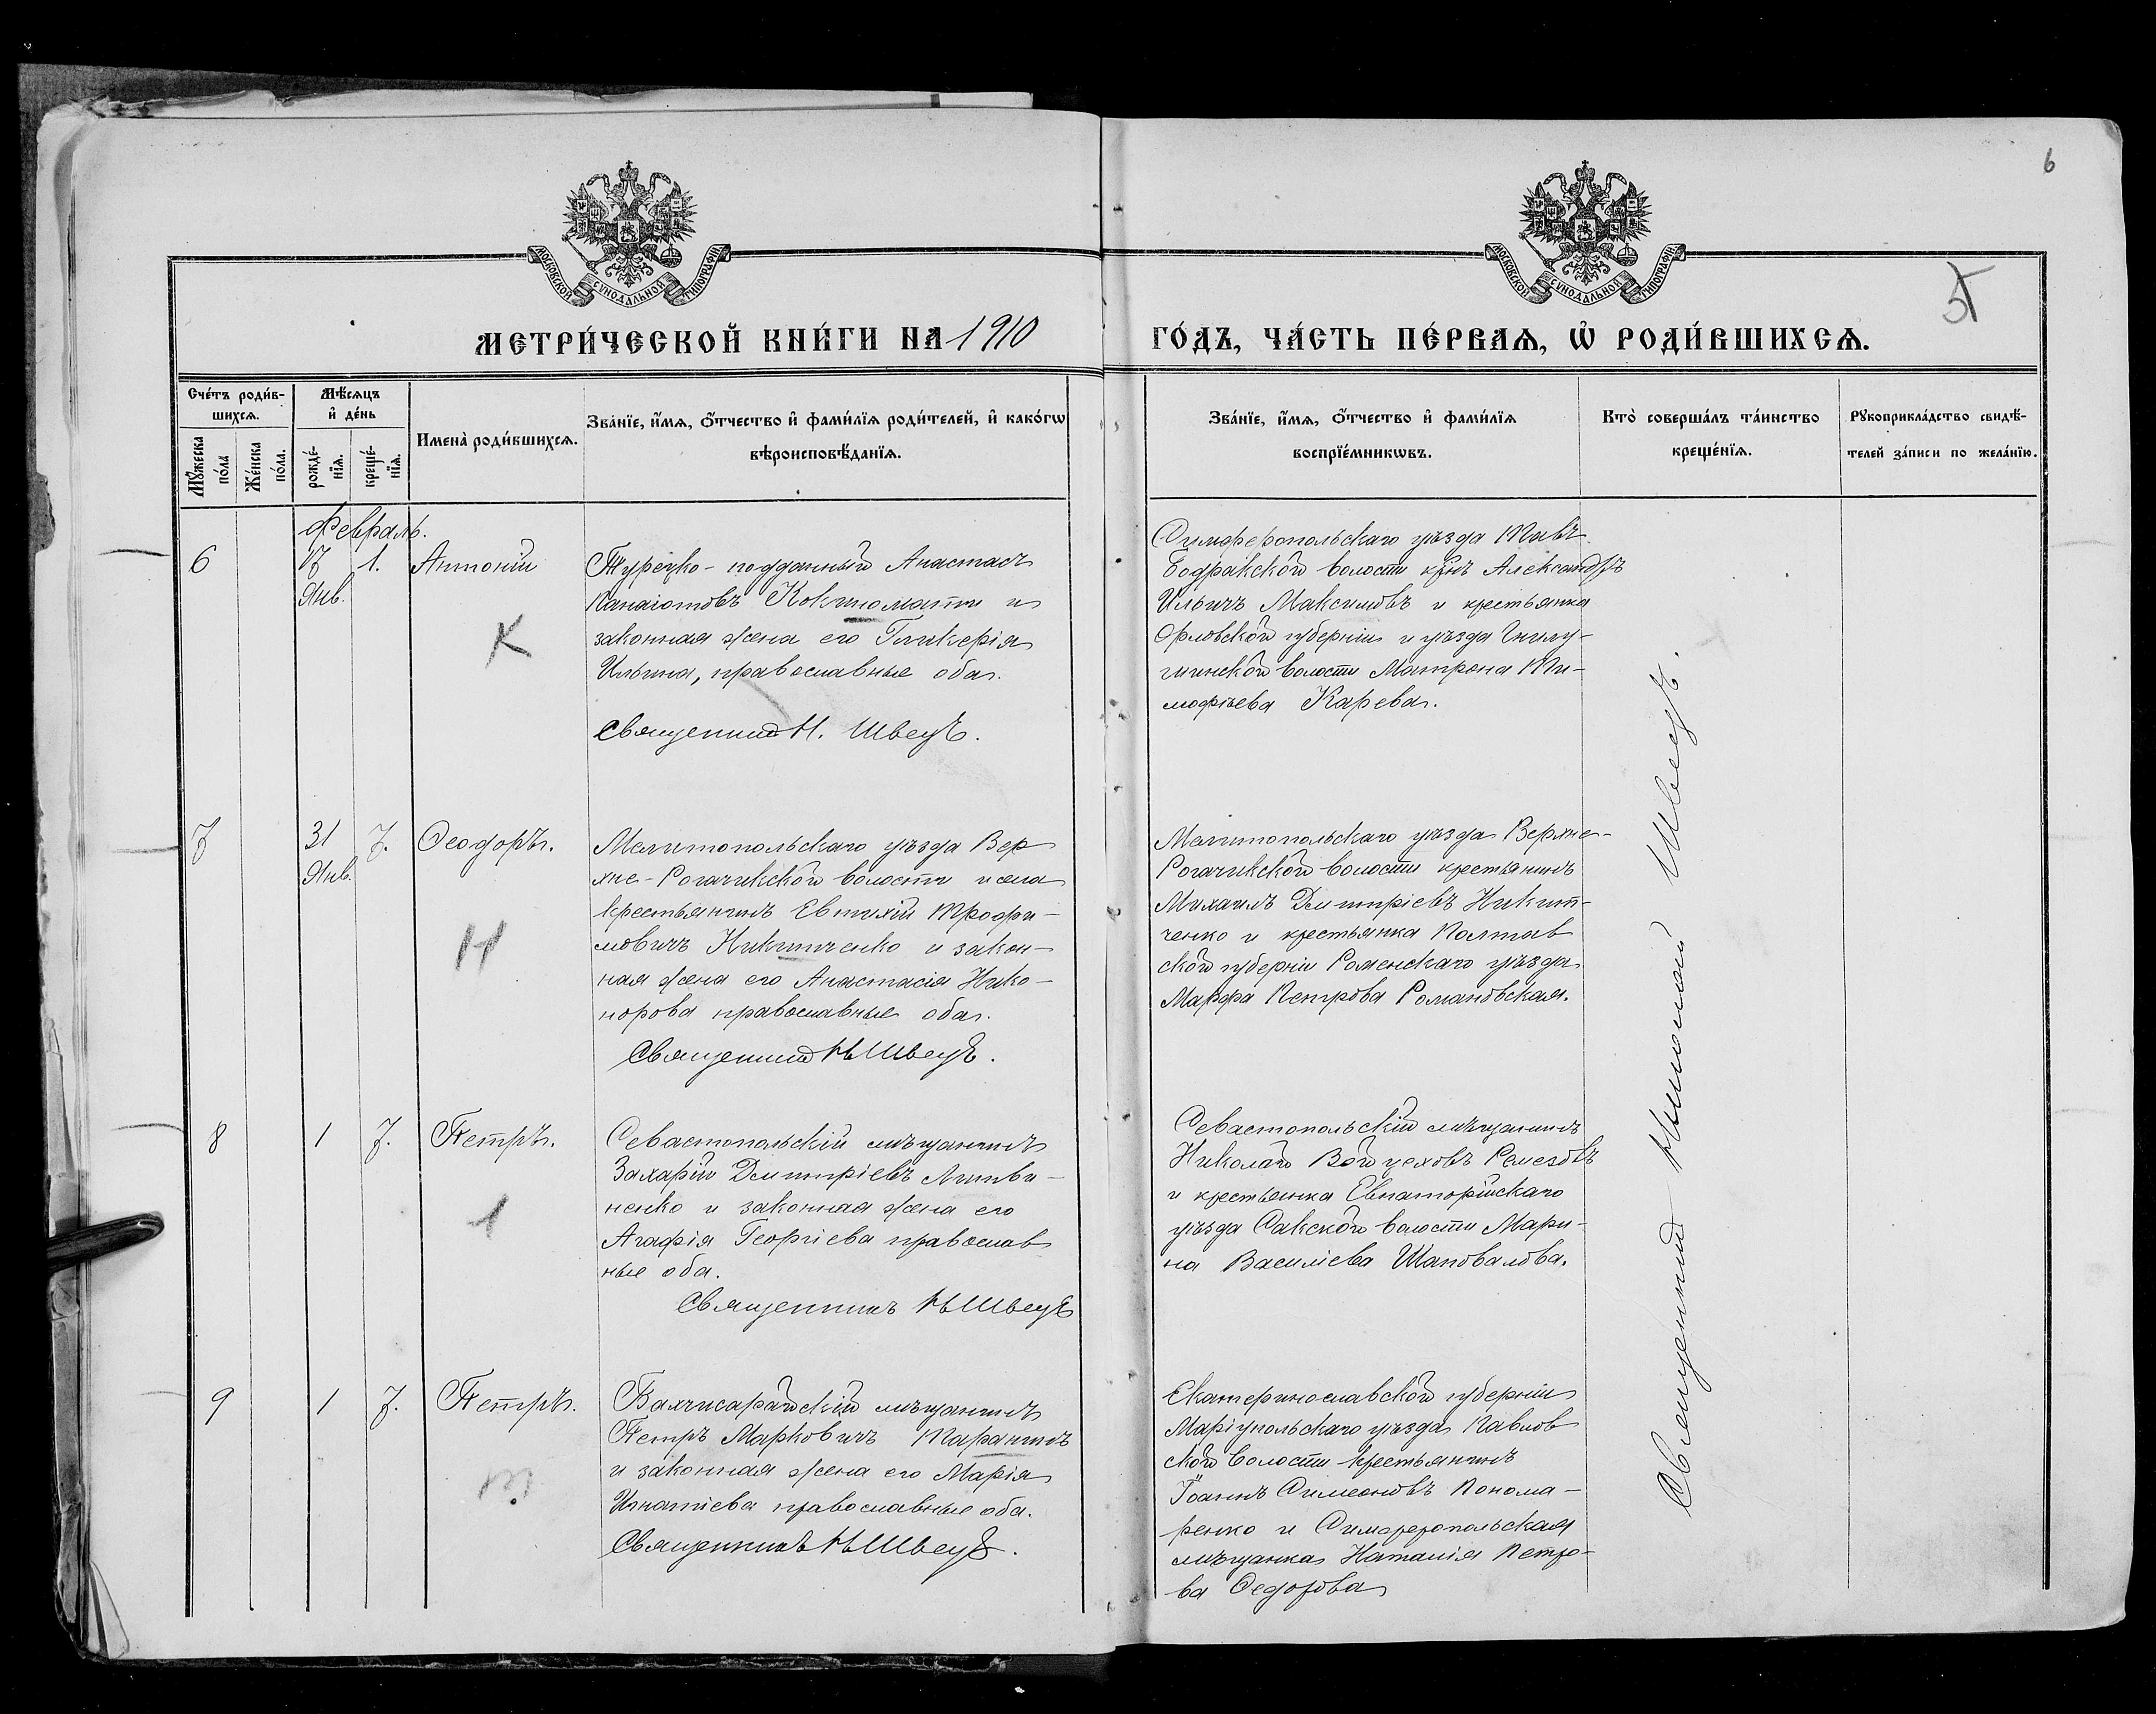 6
МОСКОВСКОЙ СѴНОДАЛЬНОЙ ТИПОГРАФІИ
МОСКОВСКОЙ СѴНОДАЛЬНОЙ ТИПОГРАФІИ
5
МЕТРИ́ЧЕСКОЙ КНИ́ГИ НА 1910 ГО́ДЪ, ЧА́СТЬ ПЕ́РВАѦ, Ѡ РОДИ́ВШИХСѦ.
Сче́тъ роди́в-
шихсѧ.
Мꙋжеска
по́ла
Же́нска
по́ла.
Мѣ́сѧцъ
и҆ де́нь
рожде́-
нїѧ.
креще́-
нїѧ.
Имена̀ роди́вшихсѧ.
Зва́нїе, и҆́мѧ, ѻ҆́тчество и҆ фами́лїѧ роди́телей, и҆ како́гѡ
вѣроисповѣ́данїѧ.
Зва́нїе, и҆́мѧ, ѻ҆́тчество и҆ фами́лїѧ
воспрїе́мникѡвъ.
Кто̀ соверша́лъ та́инство
креще́нїѧ.
Рꙋкоприкла́дство свидѣ́-
телей за́писи по жела́нїю.
Февраль.
6
17
Янв.
1.
Антоній
К
Турецко-подданный Анастасъ
Панаіотовъ Кокиноматти и
законная жена его Гликерія
Ильина, православные оба.
Священникъ Н. Швецъ.
Симферопольскаго уѣзда Тавъ-
Бодракской волости крнъ Александръ
Ильичъ Максимовъ и крестьянка
Орловской губерніи и уѣзда
волости Матрона Ти-
мофѣева Карева.
7
31
Янв.
7.
Ѳеодоръ.
Н
Мелитопольскаго уѣзда Вер
хне-Рогачикской волости и села
крестьянинъ Евтихій Трофи-
мовичъ Никитченко и закон-
ная жена его Анастасія Нико-
норова православные оба.
Священникъ Н Швецъ.
Мелитопольскаго уѣзда Верхне-
Рогачикской волости крестьянинъ
Михаилъ Димитріевъ Никит-
ченко и крестьянка Полтав
ской губерніи Роменскаго уѣзда
Марфа Петрова Романовская.
8
1
7.
Петръ.
Л
Севастопольскій мѣщанинъ
Захарій Димитріевъ Литви-
ненко и законная жена его
Агафія Георгіева православ
ные оба.
Священникъ Н Швецъ
Севастопольскій мѣщанинъ
Николай Войцеховъ Ремезовъ
и крестьянка Евпаторійскаго
уѣзда Сакской волости Мари-
на Василіева Шаповалова.
9
1
7.
Петръ.
Т
Бахчисарайскій мѣщанинъ
Петръ Марковичъ Таранинъ
и законная жена его Марія
Игнатіева православные оба.
Священникъ Н Швецъ.
Екатеринославской губерніи
Маріупольскаго уѣзда Павлов
ской волости крестьянинъ
Іоаннъ Симеоновъ Понома-
ренко и Симферопольская
мѣщанка Наталія Петро-
ва Ѳедорова
Священникъ Николай Швецъ.